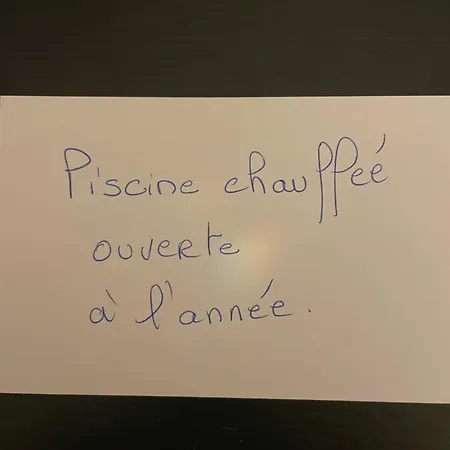 Piscine chauffeé
ouverte
à l'année.